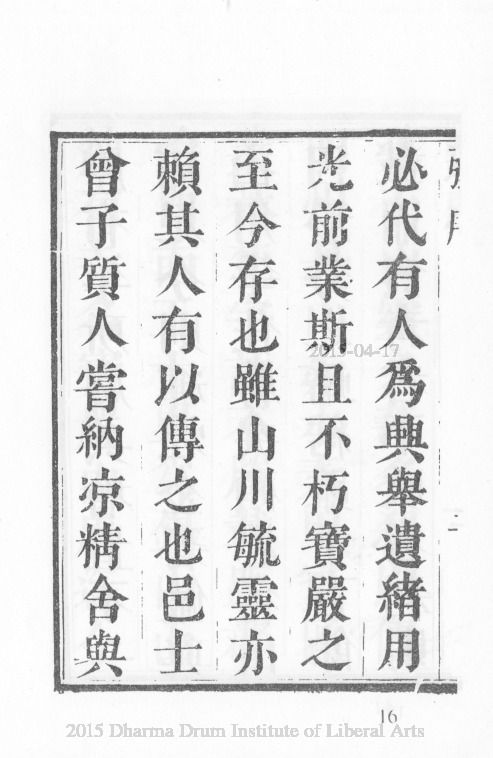 必代有人為興舉遺緒用
光前業斯且不朽寶嚴之
至今存也雖山川毓靈亦
賴其人有以傳之也邑士
曾子質人嘗納凉精舍與
2015-04-17
16
2015 Dharma Drum Institute of Liberal Arts